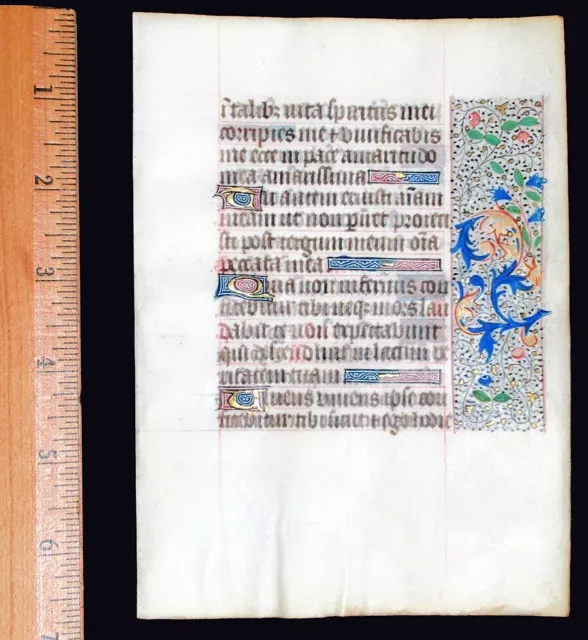 ī talib; uita spiritus mei
corripies me ⁊ viuificabis
me ecce in pace amaritudo
mea amarissima
Tu autem eruisti aīam
meam ut non periret proieci
sti post tergum meum oīa
peccata mea
Quia non infernus con
fitebitur tibi neq; mors lau
dabit te non expectabunt
qui descendunt in lacum ve
ritatem tuam
Viuens viuens ipse con
fitebitur tibi sicut ⁊ ego hodie
1
2
3
4
5
6
7